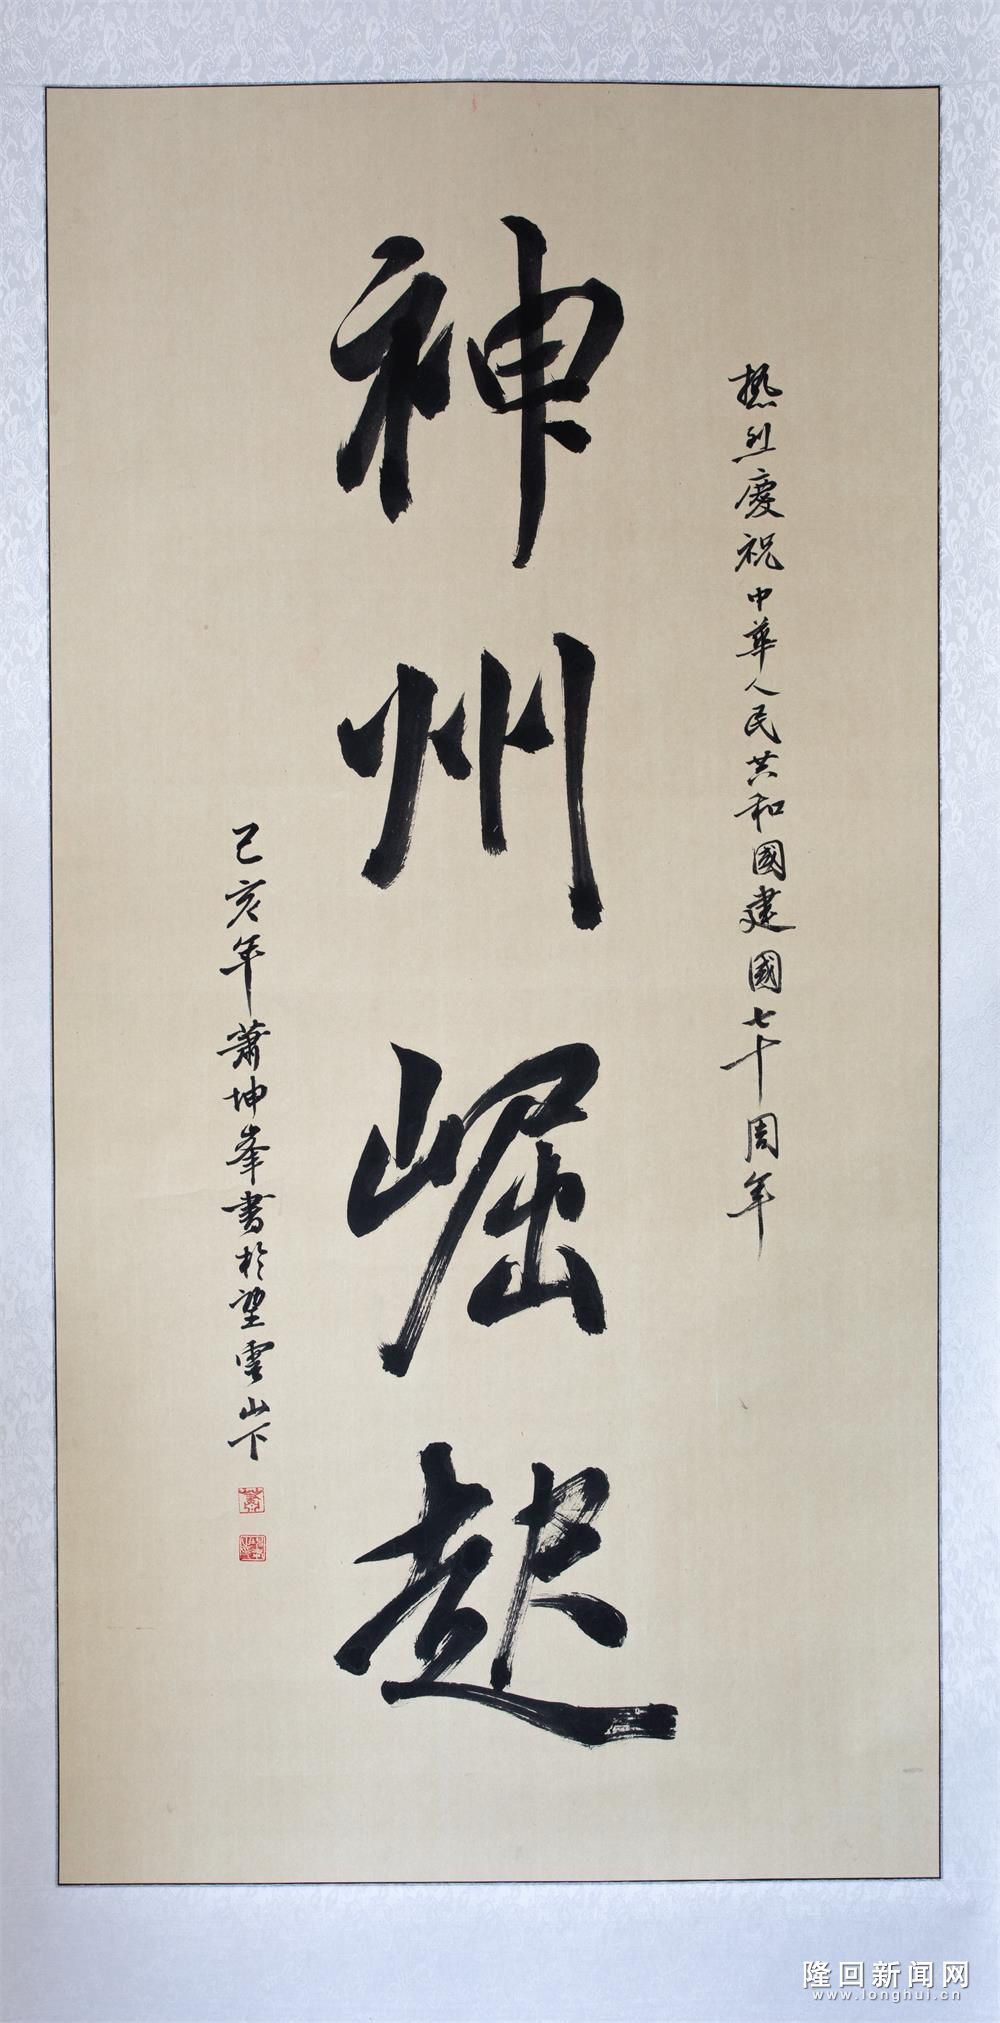 熱烈慶祝中華人民共和國建國七十周年
神州崛起
己亥年蕭坤峯書於望雲山下
隆回新闻网
www.longhui.cn